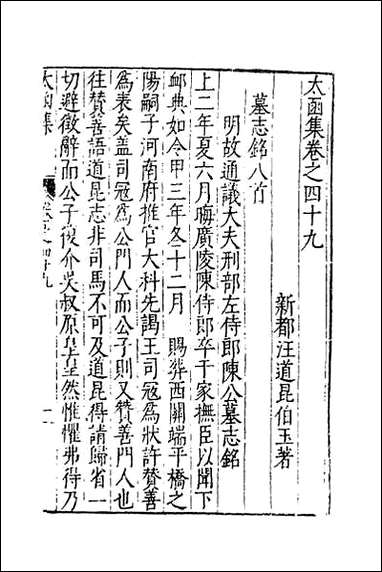 太函集卷之四十九
新都汪道昆伯玉著
墓志銘八首
明故通議大夫刑部左侍郎陳公墓志銘
上二年夏六月晦廣陵陳侍郎卒于家撫臣以聞下
卹典如令甲三年冬十二月 賜葬西關端平橋之
陽嗣子河南府推官大科先謁王司寇為狀許贊善
為表矣蓋司寇為公門人而公子則又贊善門人也
往贊善語道昆志非司馬不可及道昆得請歸省一
切避徵辭而公子復介吳叔原皇皇然惟懼弗得乃
太函集
卷之四十九
一